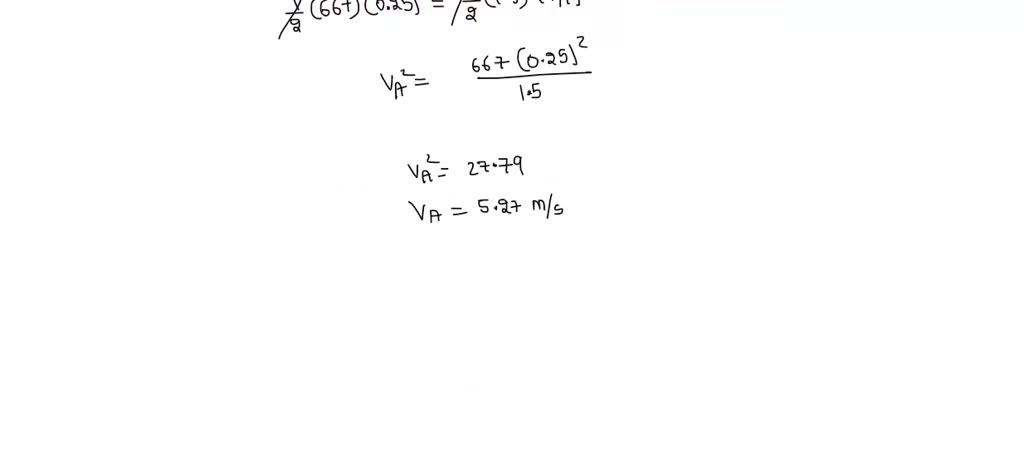 1/2 (667) (0.25) = 1/2
V_A^2 = 667 (0.25)^2 / 1.5
V_A^2 = 27.79
V_A = 5.27 m/s